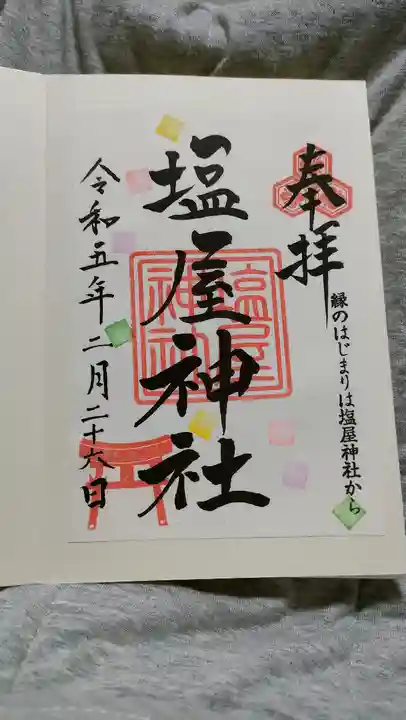 奉拝
縁のはじまりは塩屋神社から
塩屋神社
塩屋
神社
令和五年二月二十六日